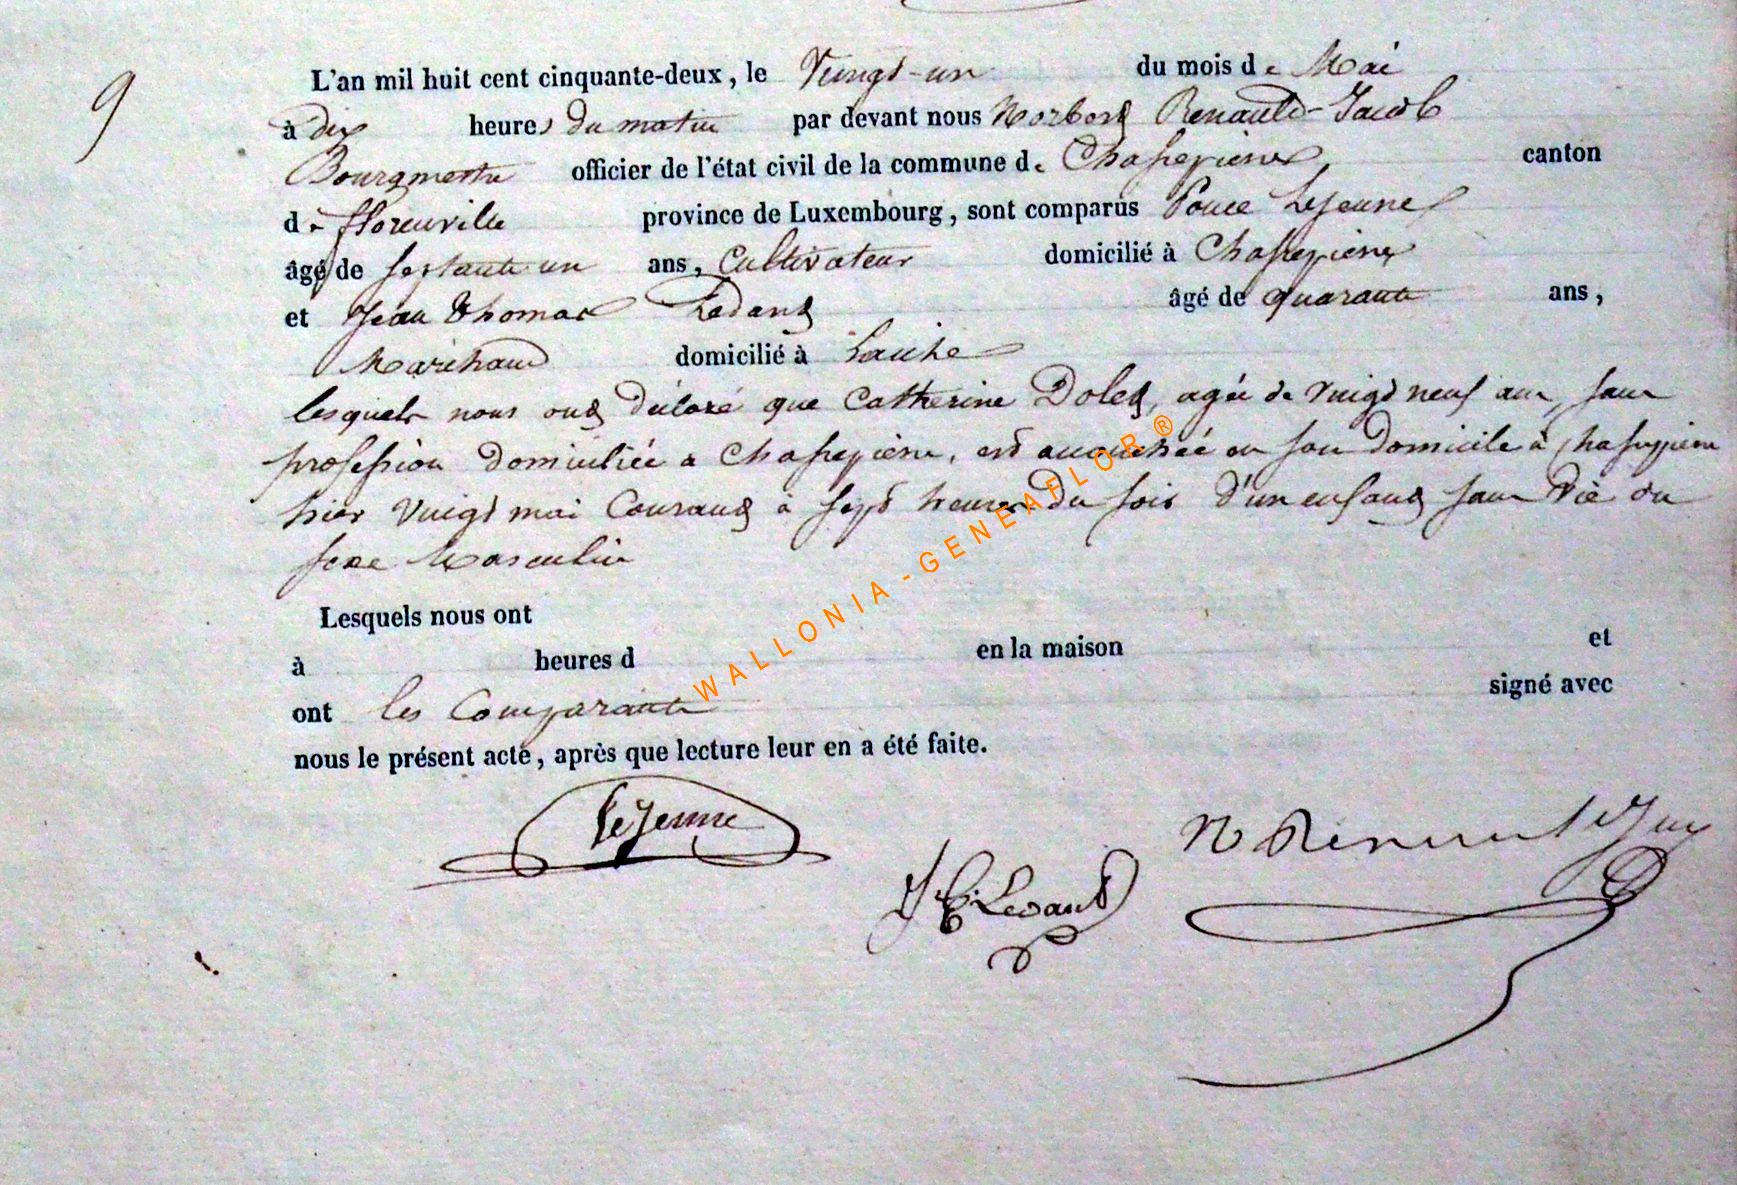 9
L'an mil huit cent cinquante-deux, le Vingt-un du mois de Mai
à dix heures du matin par devant nous Norbert Renauld-Jacob
Bourgmestre officier de l'état civil de la commune de Chassepierre, canton
de fflorenville province de Luxembourg, sont comparus Ponce Lejeune
âgé de septante un ans, Cultivateur domicilié à Chassepierre
et Jean Thomas Ledant âgé de quarante ans,
Marchand domicilié à Laiche
lesquels nous ont déclaré que Catherine Dolet, agée de vingt neuf ans, sans
profession domiciliée à Chassepierre, est accouchée en son domicile à Chassepierre
hier vingt mai Courant à sept heures du soir d'un enfant sans vie du
sexe Masculin
Lesquels nous ont
à heures d en la maison et
ont les Comparants signé avec
nous le présent acte, après que lecture leur en a été faite.
LeJeune
J T Ledant
N Renauld
WALLONIA - GENEAFLOR ®